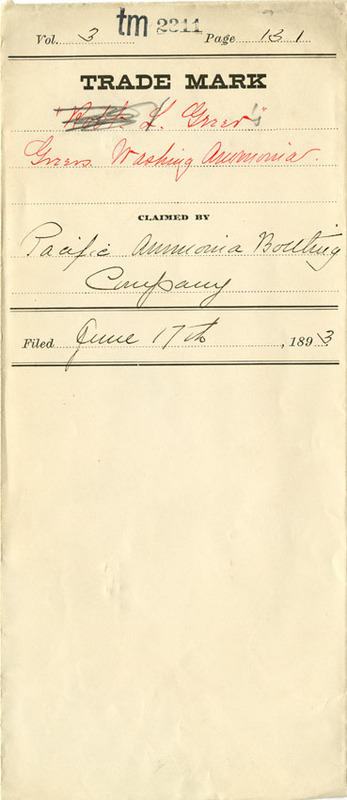 Vol. 3 tm 2311 Page 131
TRADE MARK
"Robt. L. Greer's"
Greers Washing Ammonia.
CLAIMED BY
Pacific Ammonia Bottling
Company
Filed June 17th, 1893